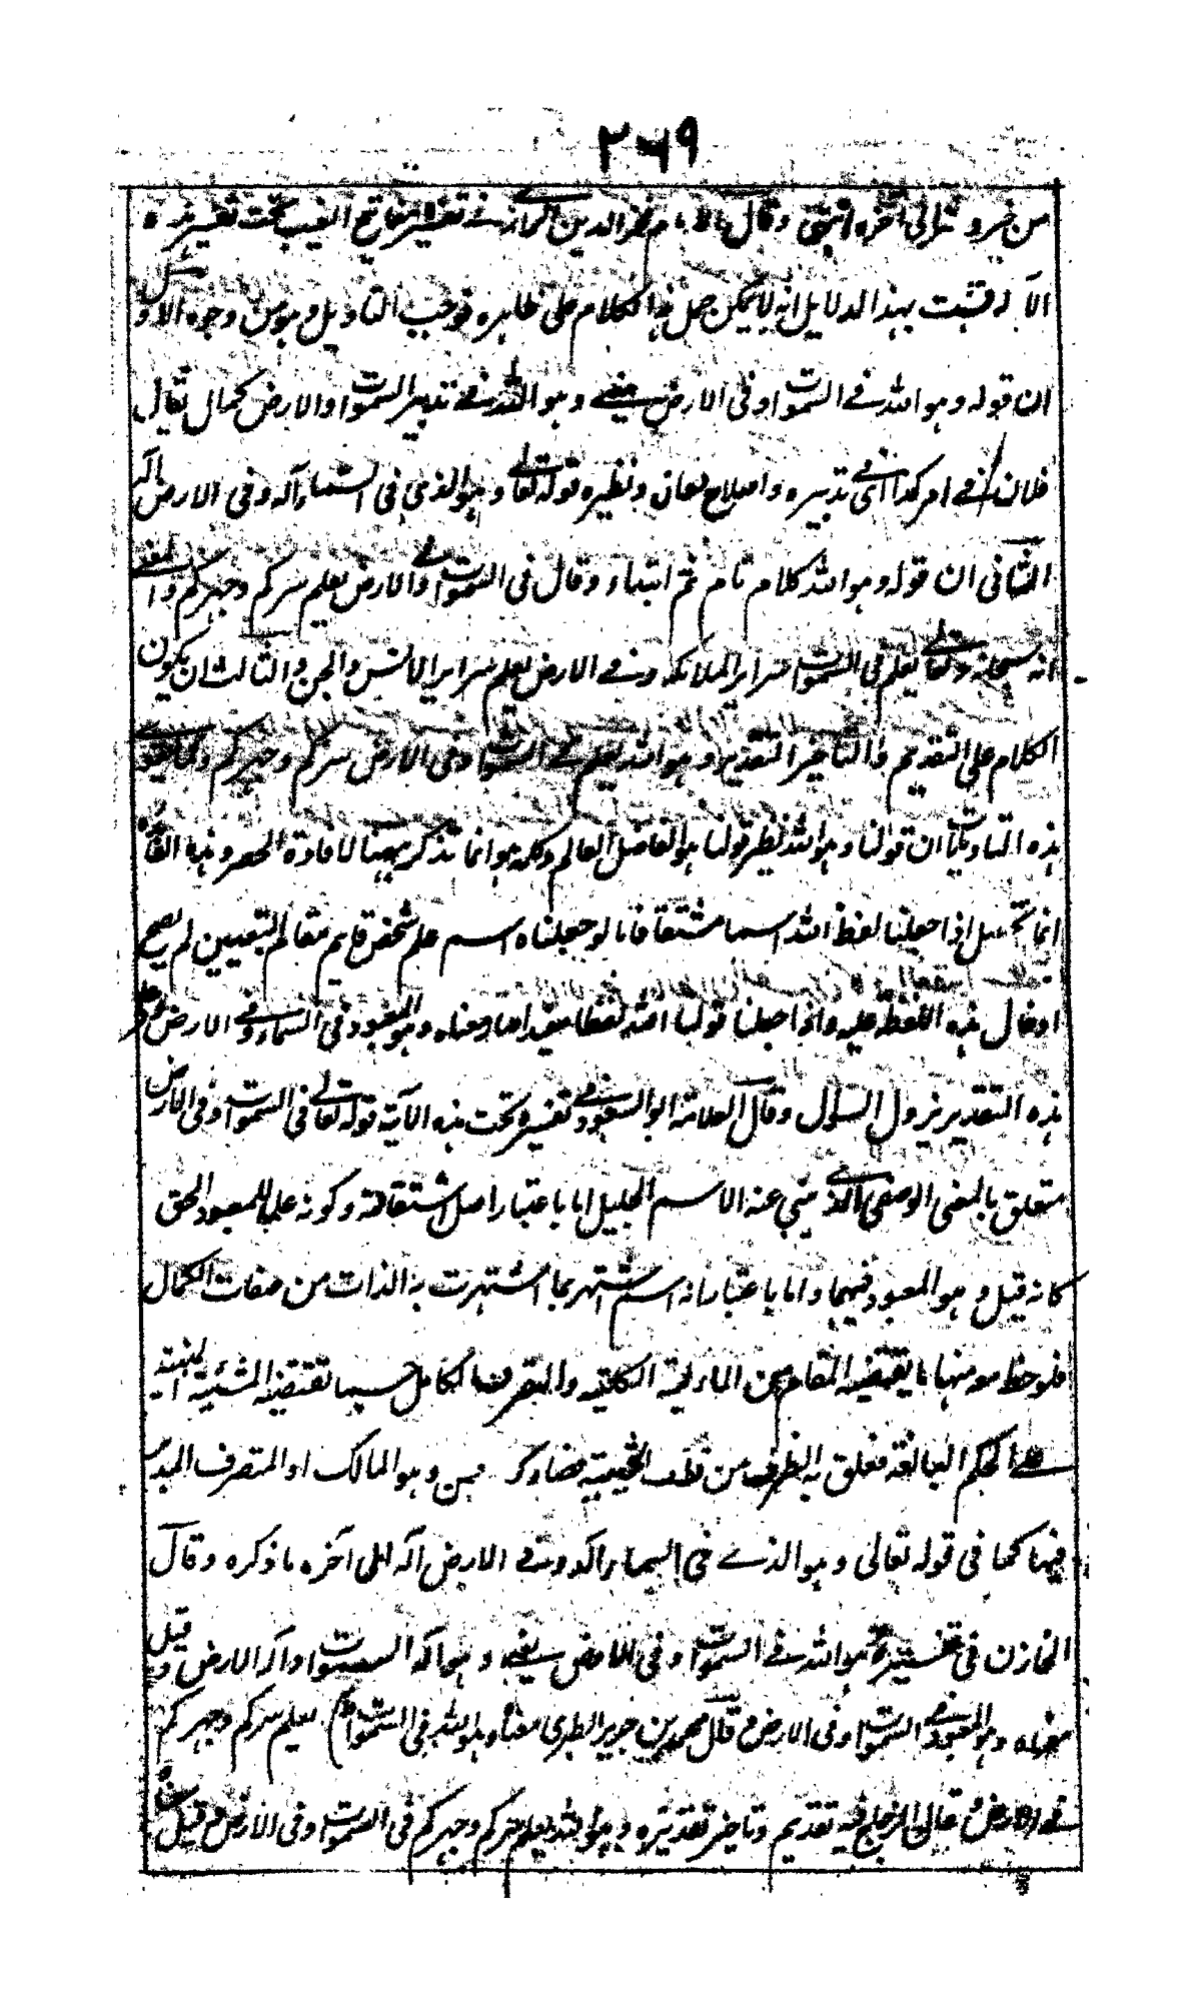 ٢٦٩
من خير و شر الى آخره انتهى وقال الامام فخر الدين الرازى فى تفسيره مفاتيح الغيب تحت تفسير هذه
الآية فثبت بهذه الدلايل انه لا يمكن حمل هذا الكلام على ظاهره فوجب التاويل وهو من وجوه الاول
ان قوله وهو الله فى السموات وفى الارض يعنى وهو الله فى تدبير السموات والارض كما يقال
فلان فى امر كذا اى فى تدبيره واصلاح مهماته ونظيره قوله تعالى وهو الذى فى السماء آله وفى الارض آله
الثانى ان قوله وهو الله كلام تام ثم ابتداء وقال فى السموات والارض يعلم سركم وجهركم والمعنى
انه سبحانه وتعالى يعلم فى السموات سراير الملائكة وفى الارض يعلم سراير الانس والجن والثالث ان يكون
الكلام على التقديم والتاخير التقدير وهو الله يعلم فى السموات وفى الارض سركم وجهركم ومما يقوى
هذه التاويلات ان قولنا وهو الله نظير قولنا هو الفاضل العالم وكلمة هو انما تذكر ههنا لافادة الحصر وهذه الفائدة
انما تحصل اذا جعلنا لفظ الله اسما مشتقا فاما لو جعلناه اسم علم شخص قايم مقام التعيين لم يصح
ادخال هذه اللفظة عليه واذا جعلنا قولنا الله لفظا مفيدا صار معناه وهو المعبود فى السماء وفى الارض وعلى
هذه التقدير يزول السوال وقال العلامة ابو السعود فى تفسيره تحت هذه الآية قوله تعالى فى السموات وفى الارض
متعلق بالمعنى الوصفى الذى ينبي عنه الاسم الجليل اما باعتبار اصل اشتقاقه وكونه علما للمعبود الحق
كانه قيل وهو المعبود فيهما واما باعتبار انه اسم اشتهر بما اشتهرت به الذات من صفات الكمال
فلوحظ معه منها ما يقتضيه المقام من المالكية الكلية والتصرف الكامل حسبما تقتضيه المشئية المبنية
على الحكم البالغة فعلق به الظرف من تلك الحيثية فصار كـ وهو المالك او المتصرف المدبر
فيهما كما فى قوله تعالى وهو الذى فى السماء آله وفى الارض آله الى آخره ما ذكره وقال
الخازن فى تفسيره هو الله فى السموات وفى الارض يعنى وهو آله السموات وآله الارض وقيل
معناه وهو المعبود فى السموات وفى الارض وقال محمد بن جرير الطبرى معناه وهو الله فى السموات يعلم سركم وجهركم
فى الارض وقال الزجاج فيه تقديم وتاخير تقديره وهو الله يعلم سركم وجهركم فى السموات وفى الارض وقيل